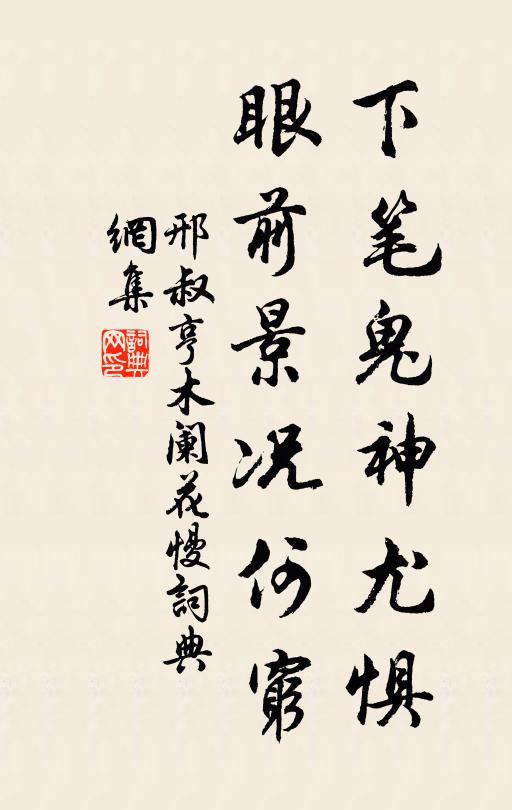 下笔鬼神尤惧
眼前景况何窮
邢叔亨木阑花慢詞典
網集
詞典网印